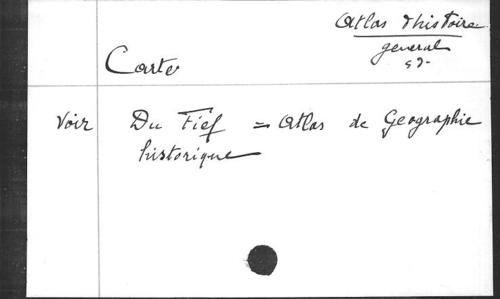 Atlas d'histoire
general
Carte
Voir Du Fief = Atlas de Geographie
historique